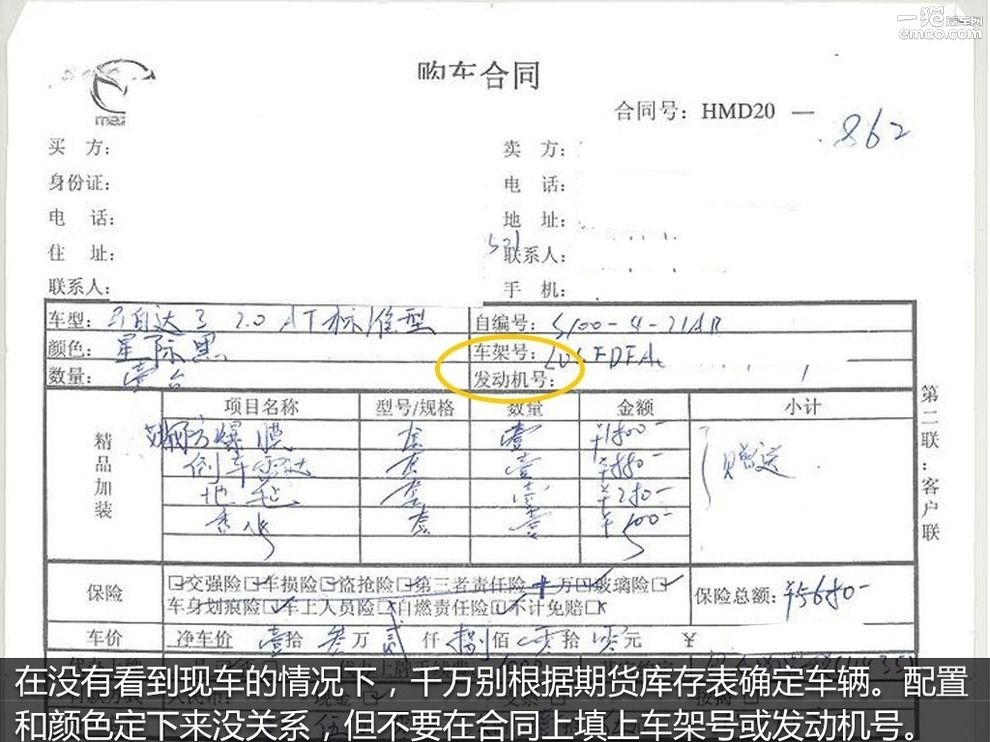 一猫汽车网
emao.com
maz
购车合同
合同号：HMD20 — 862
买 方：
卖 方：
身份证：
电 话：
电 话：
地 址：
住 址：
联系人：
联系人：
手 机：
车型：马自达3 2.0 AT标准型
自编号：S100-4-21AB
颜色：星际黑
车架号：
数量：壹台
发动机号：
项目名称 型号/规格 数量 金额 小计
精品加装
防爆膜 套 壹 ¥1800-
倒车雷达 套 壹 ¥880-
地毯 套 壹 ¥280-
香水 套 壹 ¥100-
赠送
第二联：客户联
保险
交强险 车损险 盗抢险 第三者责任险 万 玻璃险
车身划痕险 车上人员险 自燃责任险 不计免赔
保险总额：¥5680-
车价 净车价 壹拾 叁万 贰仟 捌佰 零拾 零元 ¥
在没有看到现车的情况下，千万别根据期货库存表确定车辆。配置
和颜色定下来没关系，但不要在合同上填上车架号或发动机号。